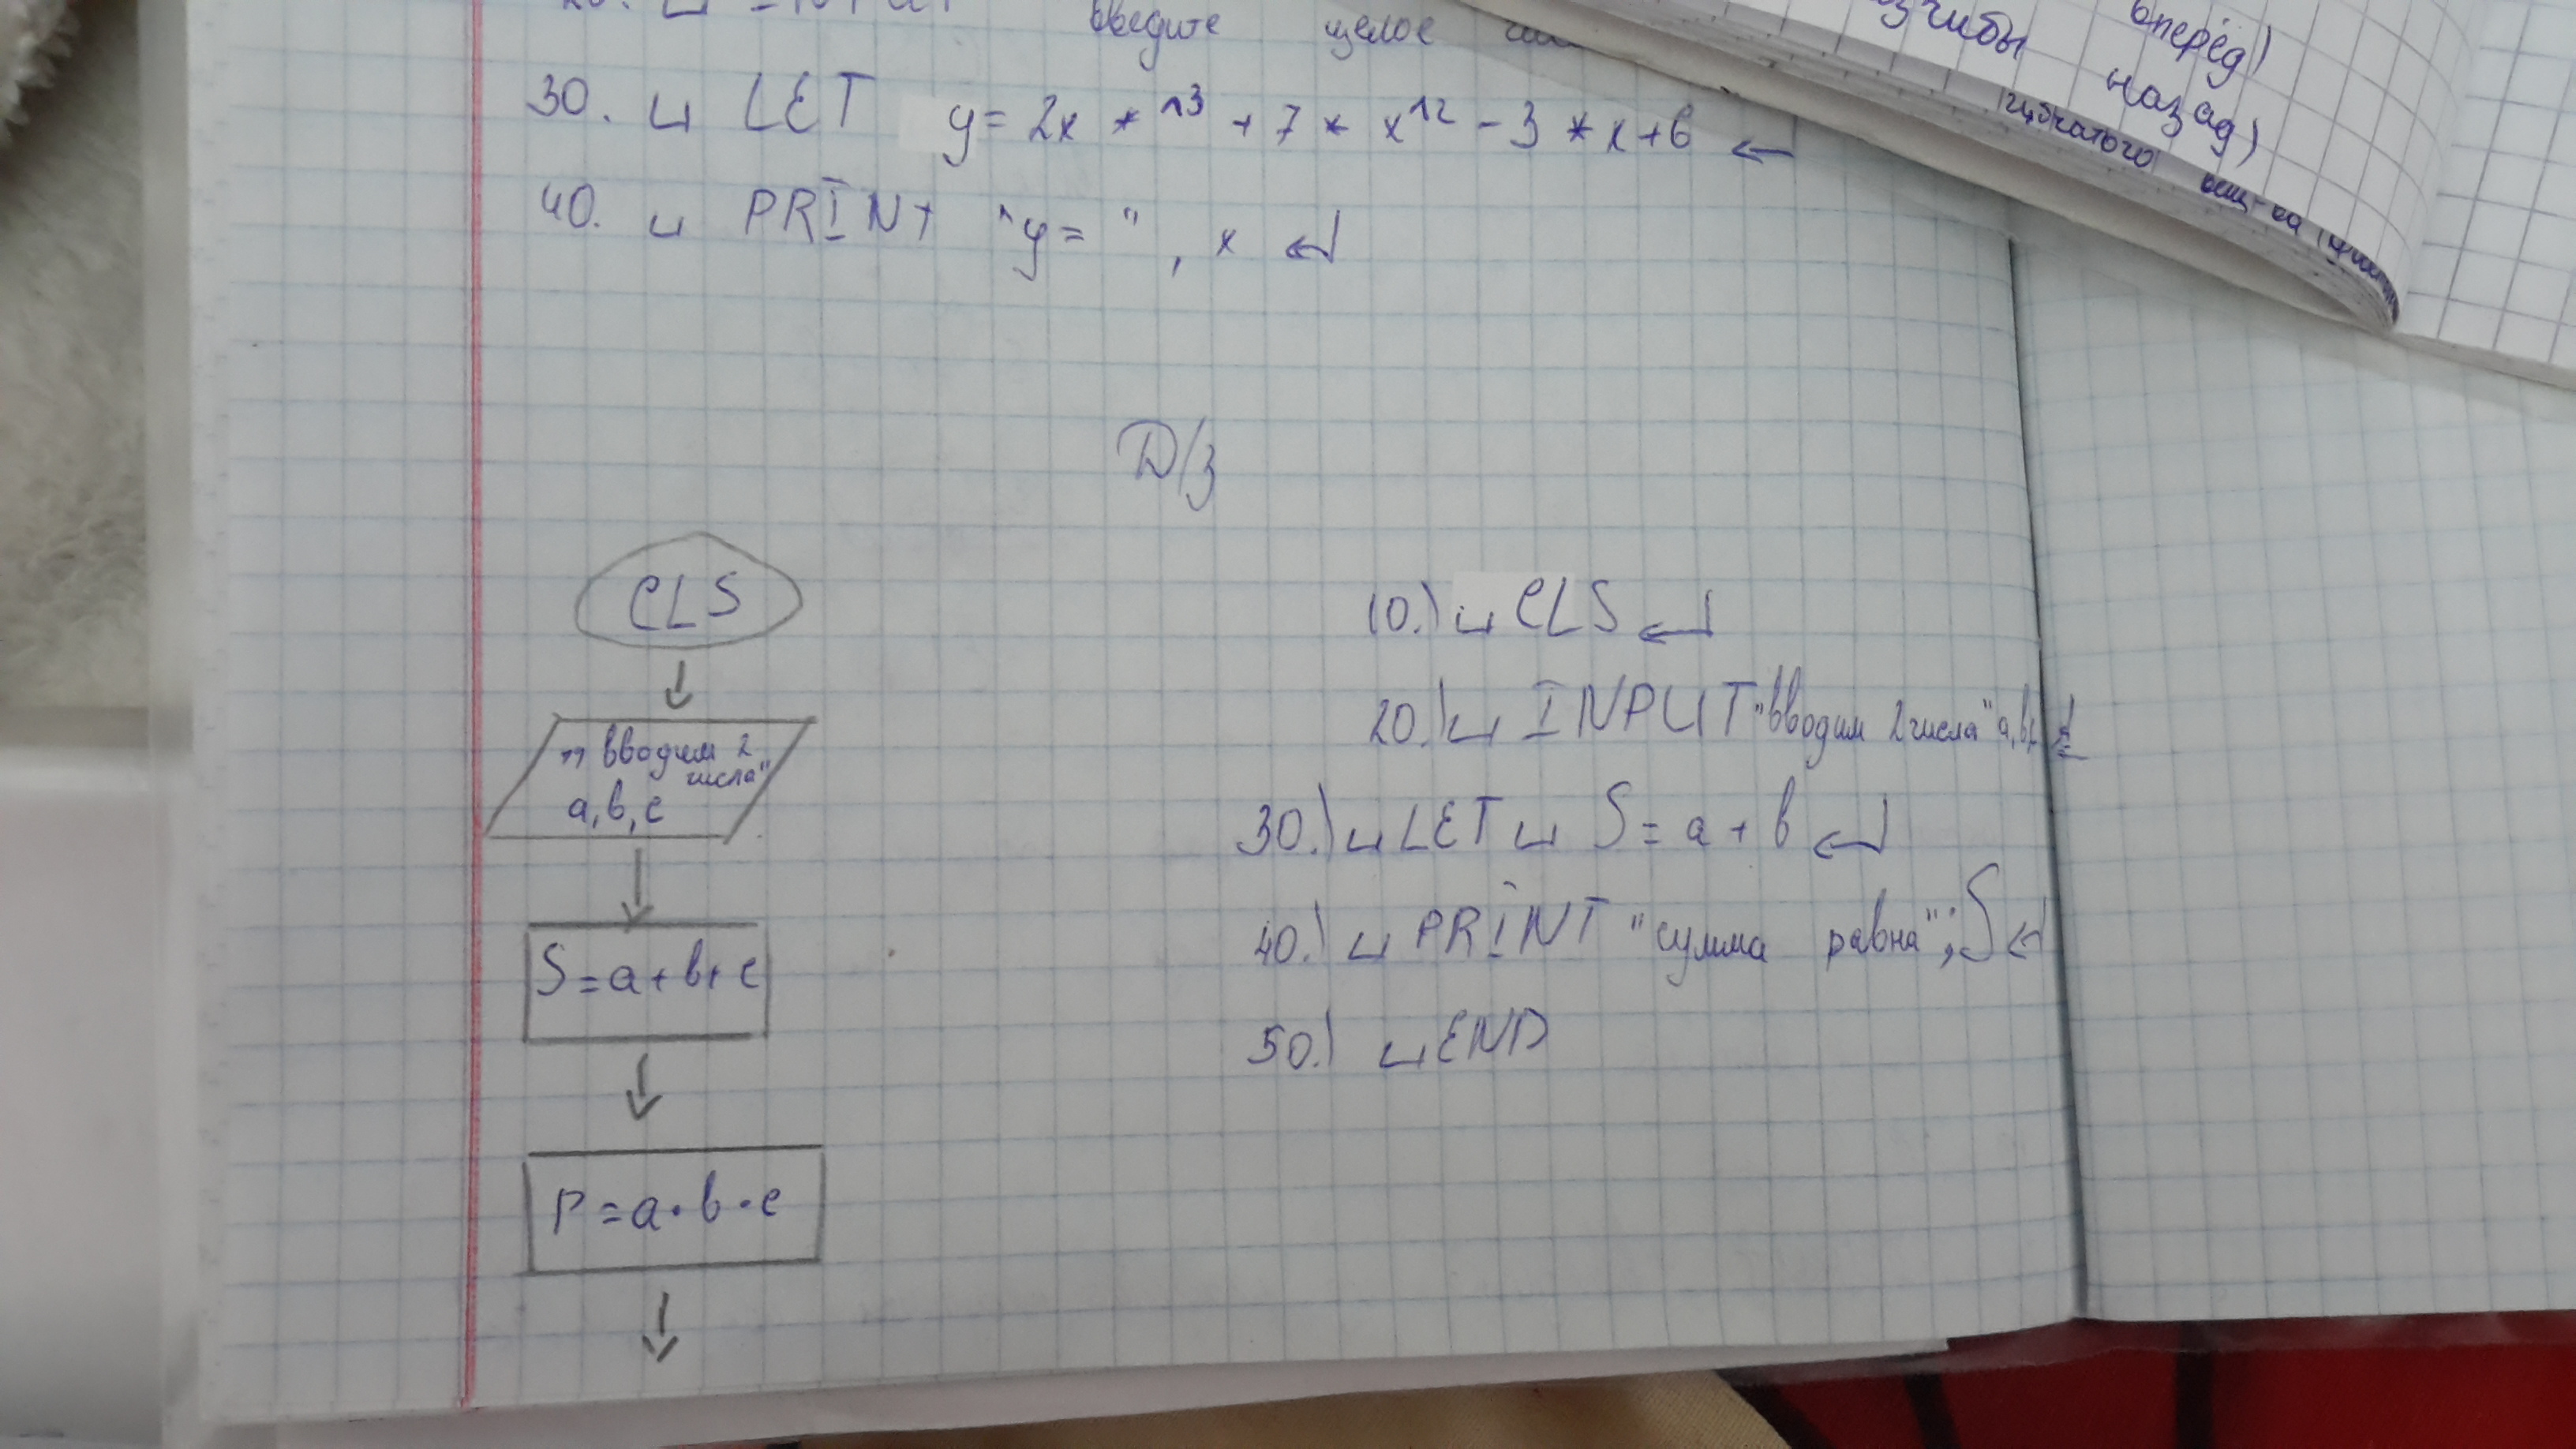 введите целое
30. ⊔ LET y = 2x * ^3 + 7 * x^12 - 3 * x + 6 ↵
40. ⊔ PRINT "y = " , x ↵
вперёд)
назад)
Д/з
CLS
"вводим 2 числа"
a, b, c
S = a + b + c
P = a · b · c
10.) ⊔ CLS ↵
20.) ⊔ INPUT "вводим 2 числа" a, b, ↵
30.) ⊔ LET ⊔ S = a + b ↵
40.) ⊔ PRINT "сумма равна"; S ↵
50.) ⊔ END